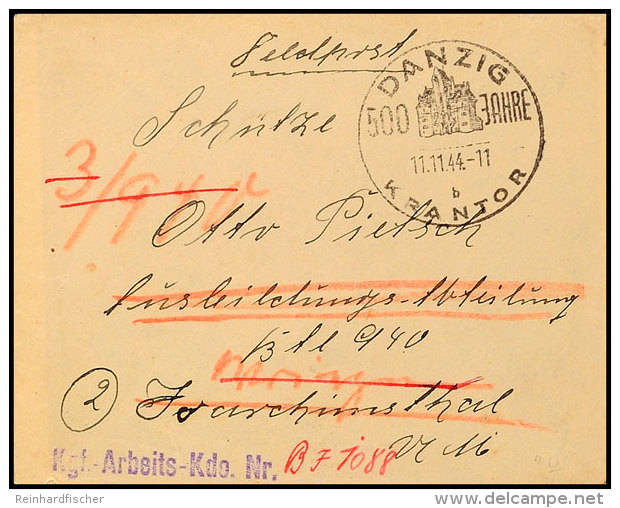 Feldpost
DANZIG
500 JAHRE
11.11.44.-11
b
KRANTOR
Schütze
3/940
Otto Pietsch
Ausbildungs-Abteilung
Btl 940
② Joachimsthal
UM
Kgf.-Arbeits-Kdo. Nr. BF 1088
Reinhardfischer
www.delcampe.net